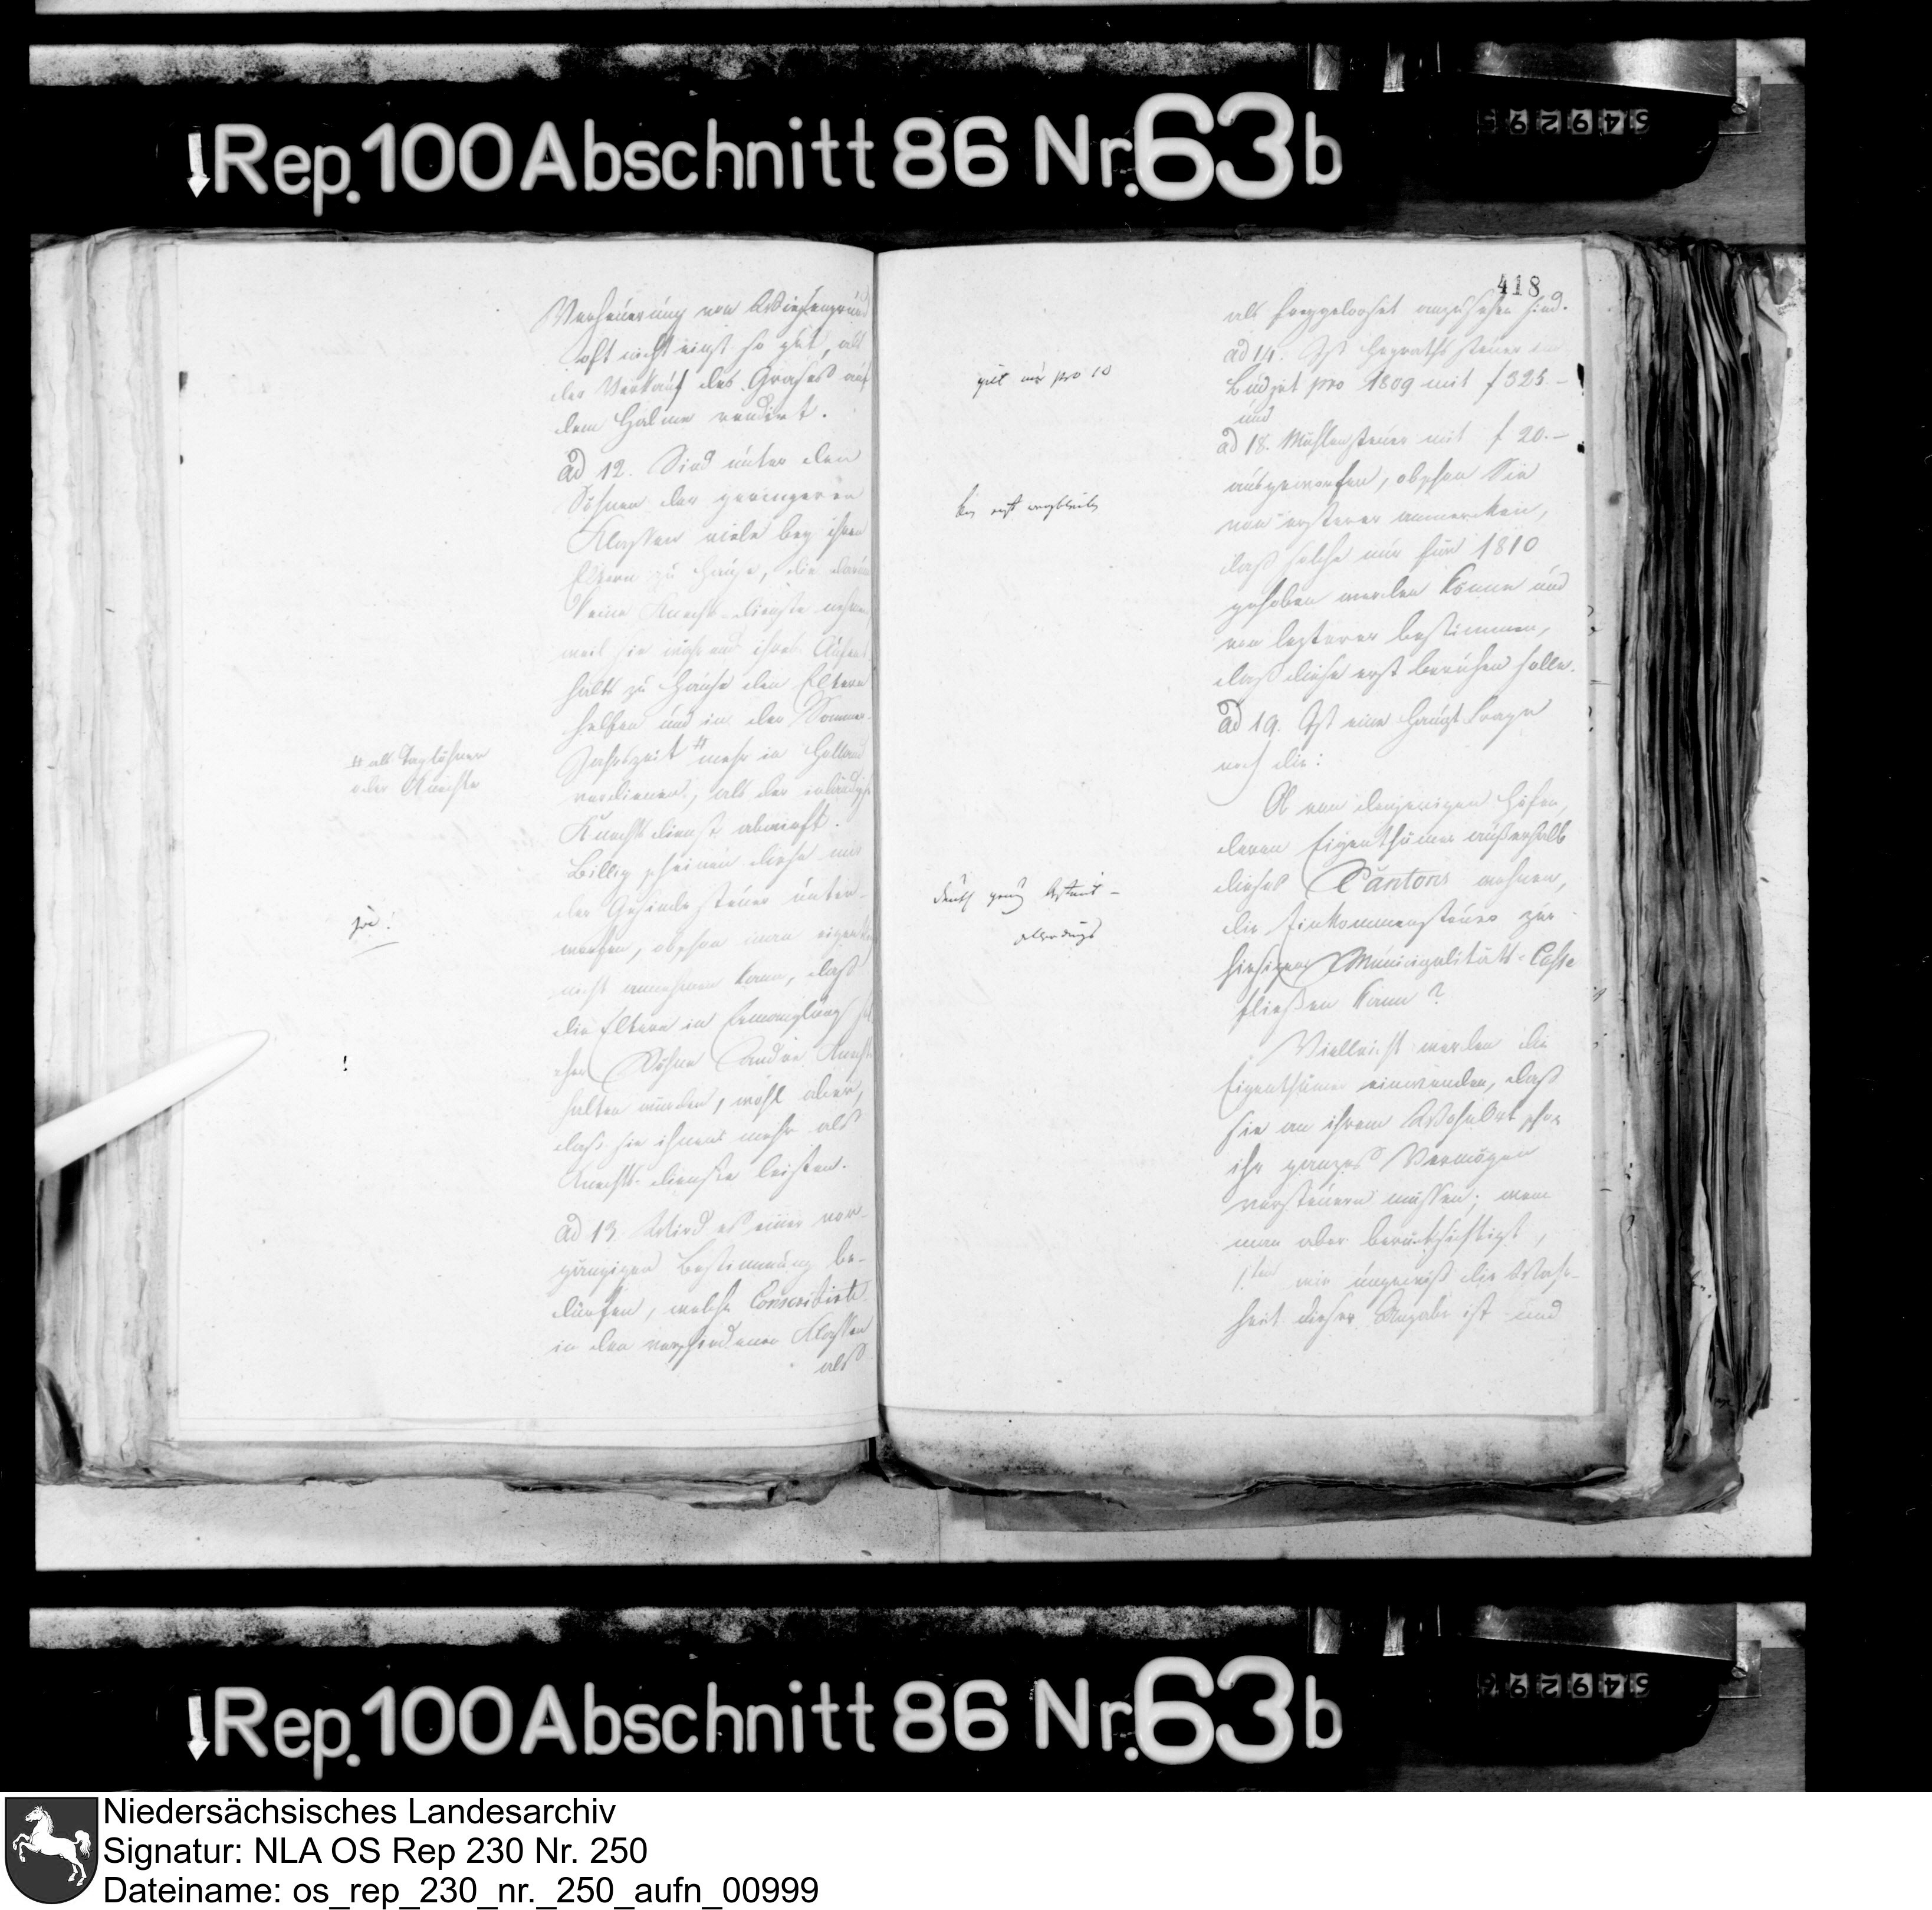 Rep. 100 Abschnitt 86 Nr. 63 b
549295
Verheuerung von Wiesengrund
oft nicht einst so gut, als
der Verkauf des Grases auf
dem Halme rendirt.
ad 12. Sind unter den
Söhnen der geringeren
Klassen viele bey ihren
Eltern zu Hause, die darum
keine Knechtsdienste nehmen,
weil sie während ihres Aufent-
halts zu Hause den Eltern
helfen und in der Sommer-
Jahrszeit # mehr in Holland
verdienen, als der inländische
Knechtsdienst abwirft.
# als Tagelöhner
oder Knechte
Billig scheinen diese mir
der Gesindesteuer unter-
worfen, obschon man eigentlich
nicht annehmen kann, daß
die Eltern in Ermanglung sol-
cher Söhne andre Knechte
halten würden, wohl aber,
daß sie ihnen mehr als
Knechts-dienste leisten.
ja!
!
ad 13. Wird es einer vor-
gängigen Bestimmung be-
dürfen, welche Conscribirte
in den verschiedenen Klassen
als
418
als freygelooset anzusehen sind.
ad 14. Ist Heyraths steuer im
Budget pro 1809 mit f 325.-
und
ad 18. Mühlensteuer mit f 20.-
ausgeworfen, obschon Sie
von ersterer anmercken,
daß solche nur für 1810
gehoben werden könne und
von lezterer bestimmen,
daß diese erst beruhen solle.
gilt nur pro 10
ad 19. Ist eine Haupt Frage
noch die:
Ob von denjenigen Höfen,
deren Eigenthümer außerhalb
dieses Cantons wohnen,
die Einkommensteuer zur
hiesigen Municipalitäts-Casse
fließen kann?
allerdings
Vielleicht werden die
Eigenthümer einwenden, daß
sie an ihrem Wohnort schon
ihr ganzes Vermögen
versteuern müssen; wenn
man aber berücksichtigt,
1.tens wie ungewiß die Wahr-
heit dieser Angabe ist und
Rep. 100 Abschnitt 86 Nr. 63 b
549295
Niedersächsisches Landesarchiv
Signatur: NLA OS Rep 230 Nr. 250
Dateiname: os_rep_230_nr._250_aufn_00999